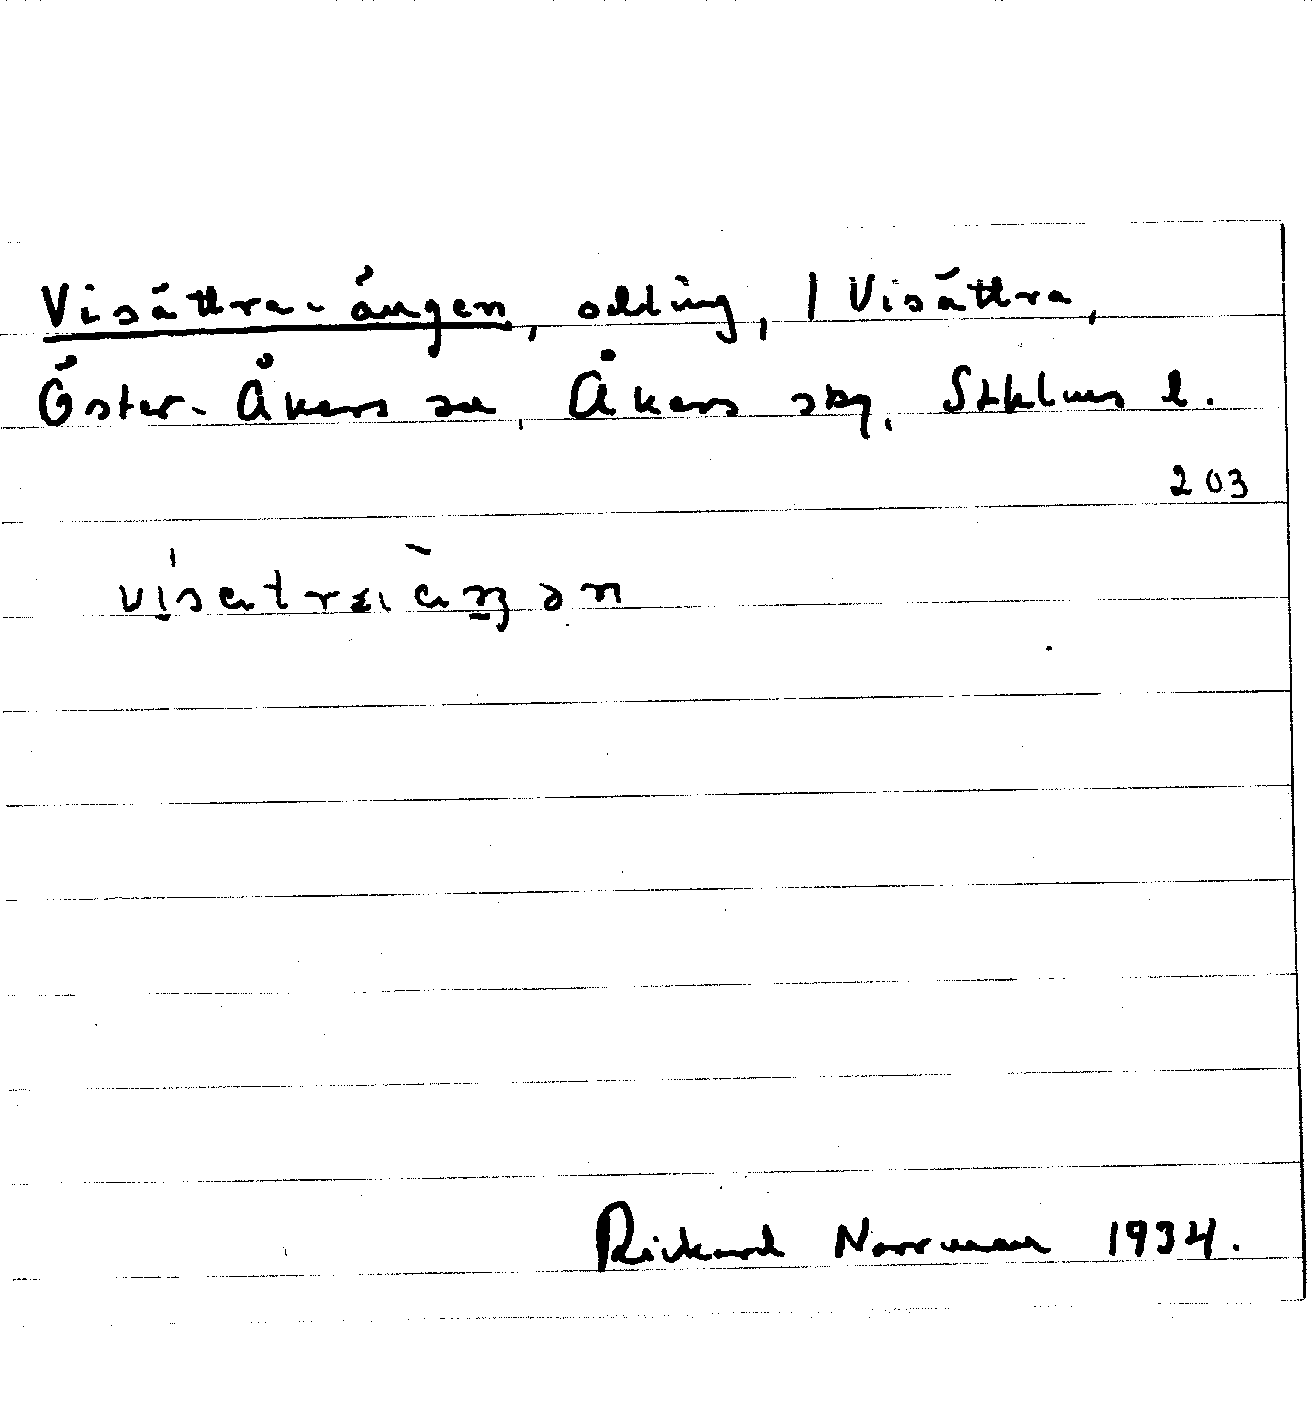 Visättra-ängen, odling, / Visättra,
Öster-Åkers sn, Åkers skg, Sthlms l.
203
Rickard Norrman 1934.